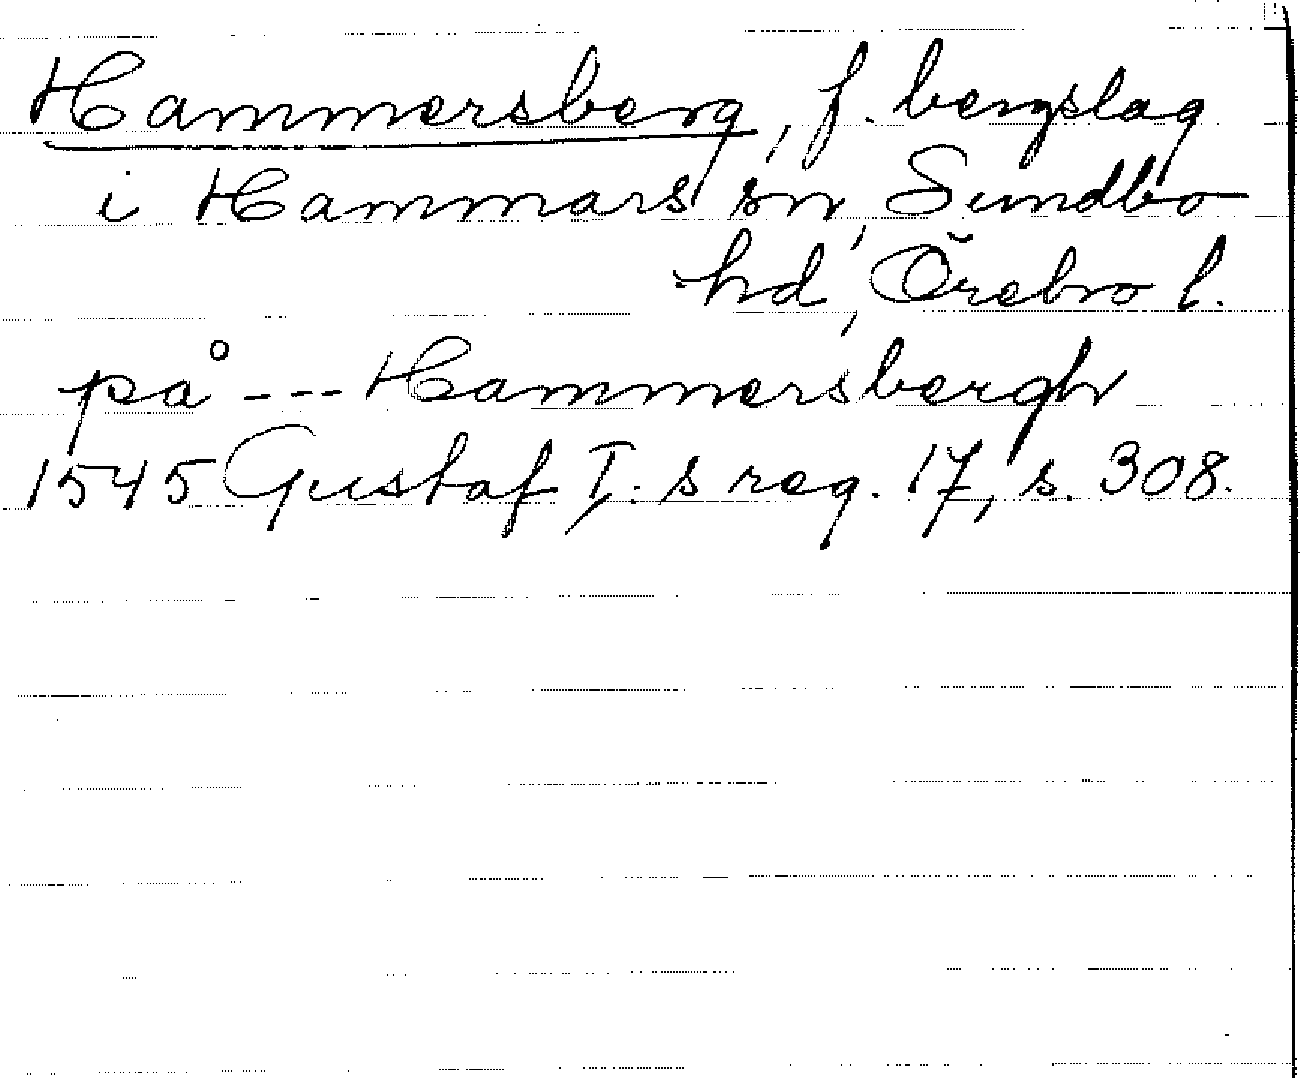 Hammersberg, f. bergslag
i Hammars sn, Sundbo
hd, Örebro l.
på --- Hammersbergh
1545 Gustaf I:s reg. 17, s. 308.